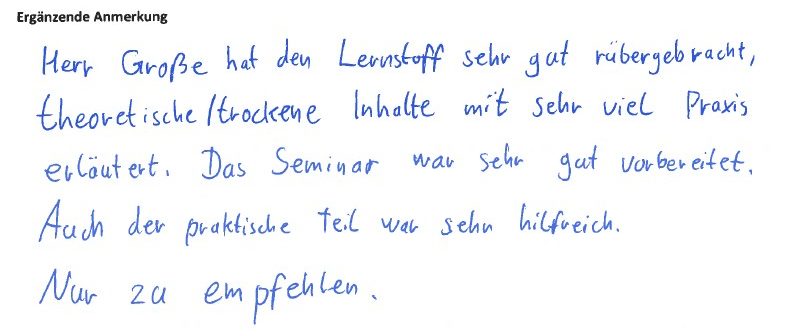 Ergänzende Anmerkung
Herr Große hat den Lernstoff sehr gut rübergebracht,
theoretische/trockene Inhalte mit sehr viel Praxis
erläutert. Das Seminar war sehr gut vorbereitet.
Auch der praktische Teil war sehr hilfreich.
Nur zu empfehlen.